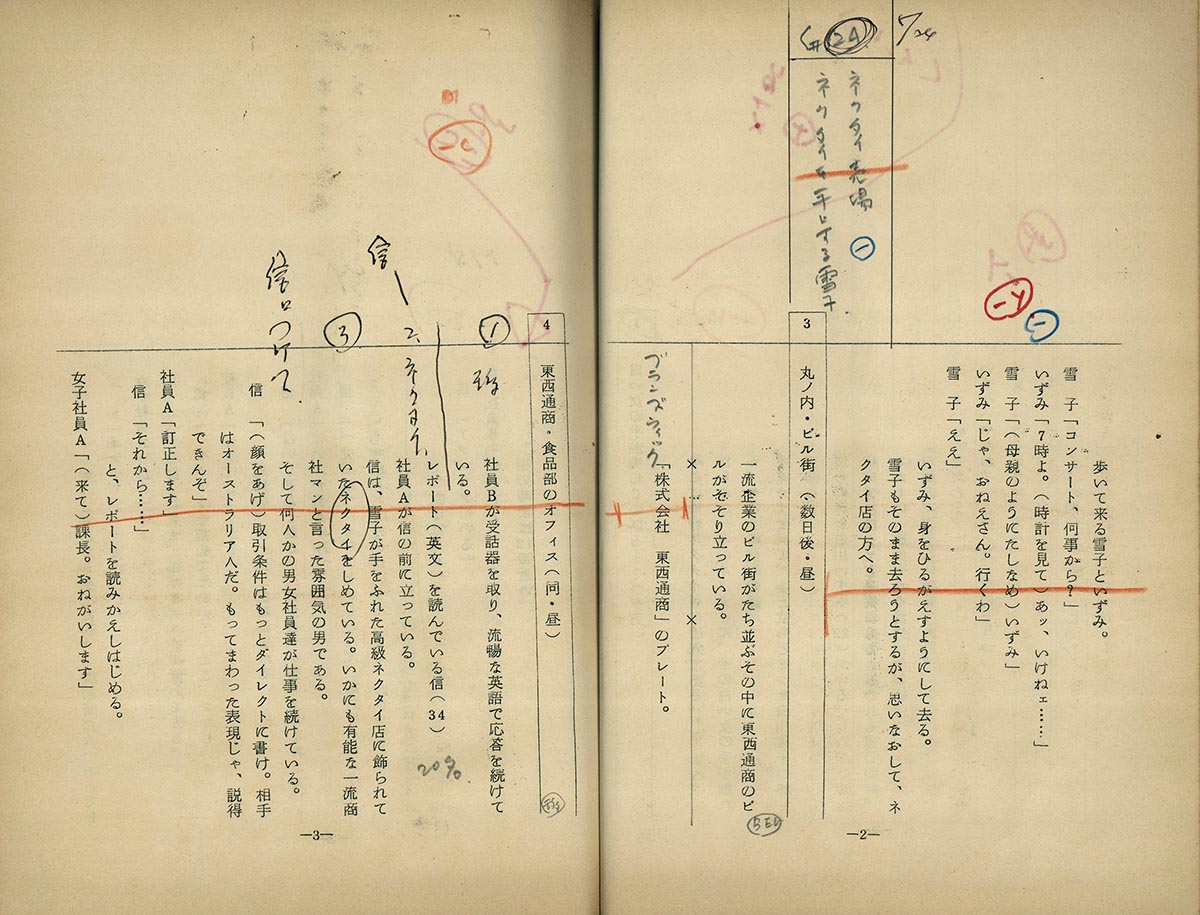 7/24
#2A
ネクタイ売場
ネクタイを手にする雪子
歩いて来る雪子といずみ。
雪　子「コンサート、何事から？」
いずみ「7時よ。（時計を見て）あッ、いけねェ……」
雪　子「（母親のようにたしなめ）いずみ」
いずみ「じゃ、おねえさん。行くわ」
雪　子「ええ」
いずみ、身をひるがえすようにして去る。
雪子もそのまま去ろうとするが、思いなおして、ネ
クタイ店の方へ。
3　丸ノ内・ビル街（数日後・昼）
一流企業のビル街がたち並ぶその中に東西通商のビ
ルがそそり立っている。
×　×
ブランズウィック
「株式会社　東西通商」のプレート。
—2—
4　東西通商・食品部のオフィス（同・昼）
1
社員Bが受話器を取り、流暢な英語で応答を続けて
いる。
レポート（英文）を読んでいる信（34）
20%
社員Aが信の前に立っている。
信
信は、雪子が手をふれた高級ネクタイ店に飾られて
3
いたネクタイをしめている。いかにも有能な一流商
社マンと言った雰囲気の男である。
そして何人かの男女社員達が仕事を続けている。
信「（顔をあげ）取引条件はもっとダイレクトに書け。相手
はオーストラリア人だ。もってまわった表現じゃ、説得
できんぞ」
社員A「訂正します」
信「それから……」
と、レポートを読みかえしはじめる。
女子社員A「（来て）課長。おねがいします」
—3—